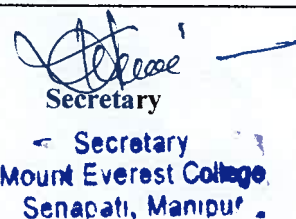 Secretary
Secretary
Mount Everest College
Senapati, Manipur